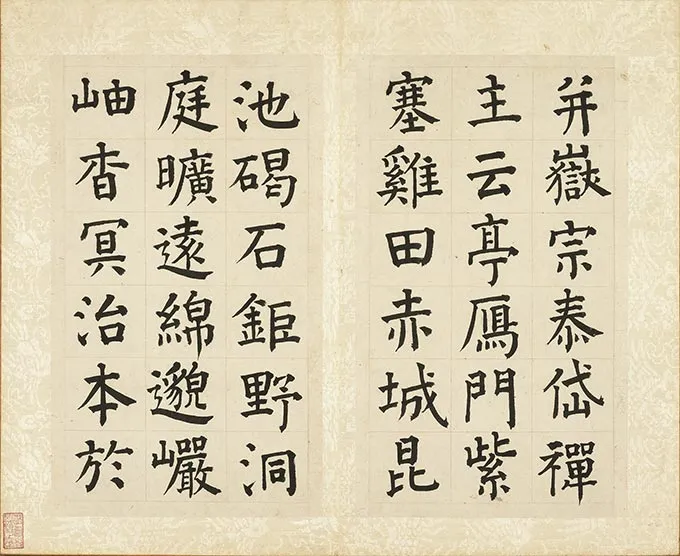 并嶽宗泰岱禪
主云亭鴈門紫
塞雞田赤城昆
池碣石鉅野洞
庭曠遠綿邈巖
岫杳冥治本於